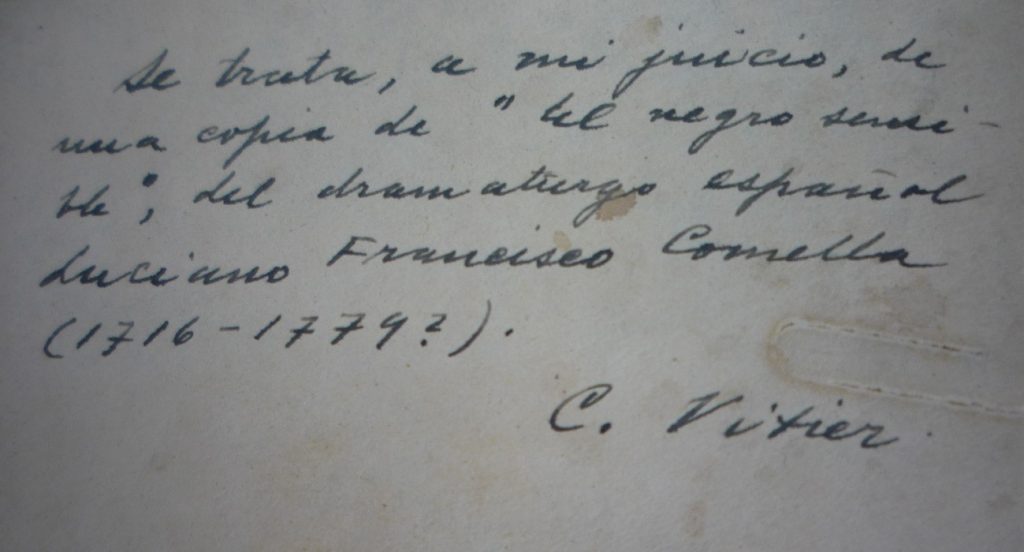 Se trata, a mi juicio, de
una copia de "El negro sensi-
ble", del dramaturgo español
Luciano Francisco Comella
(1716-1779?).
C. Vitier